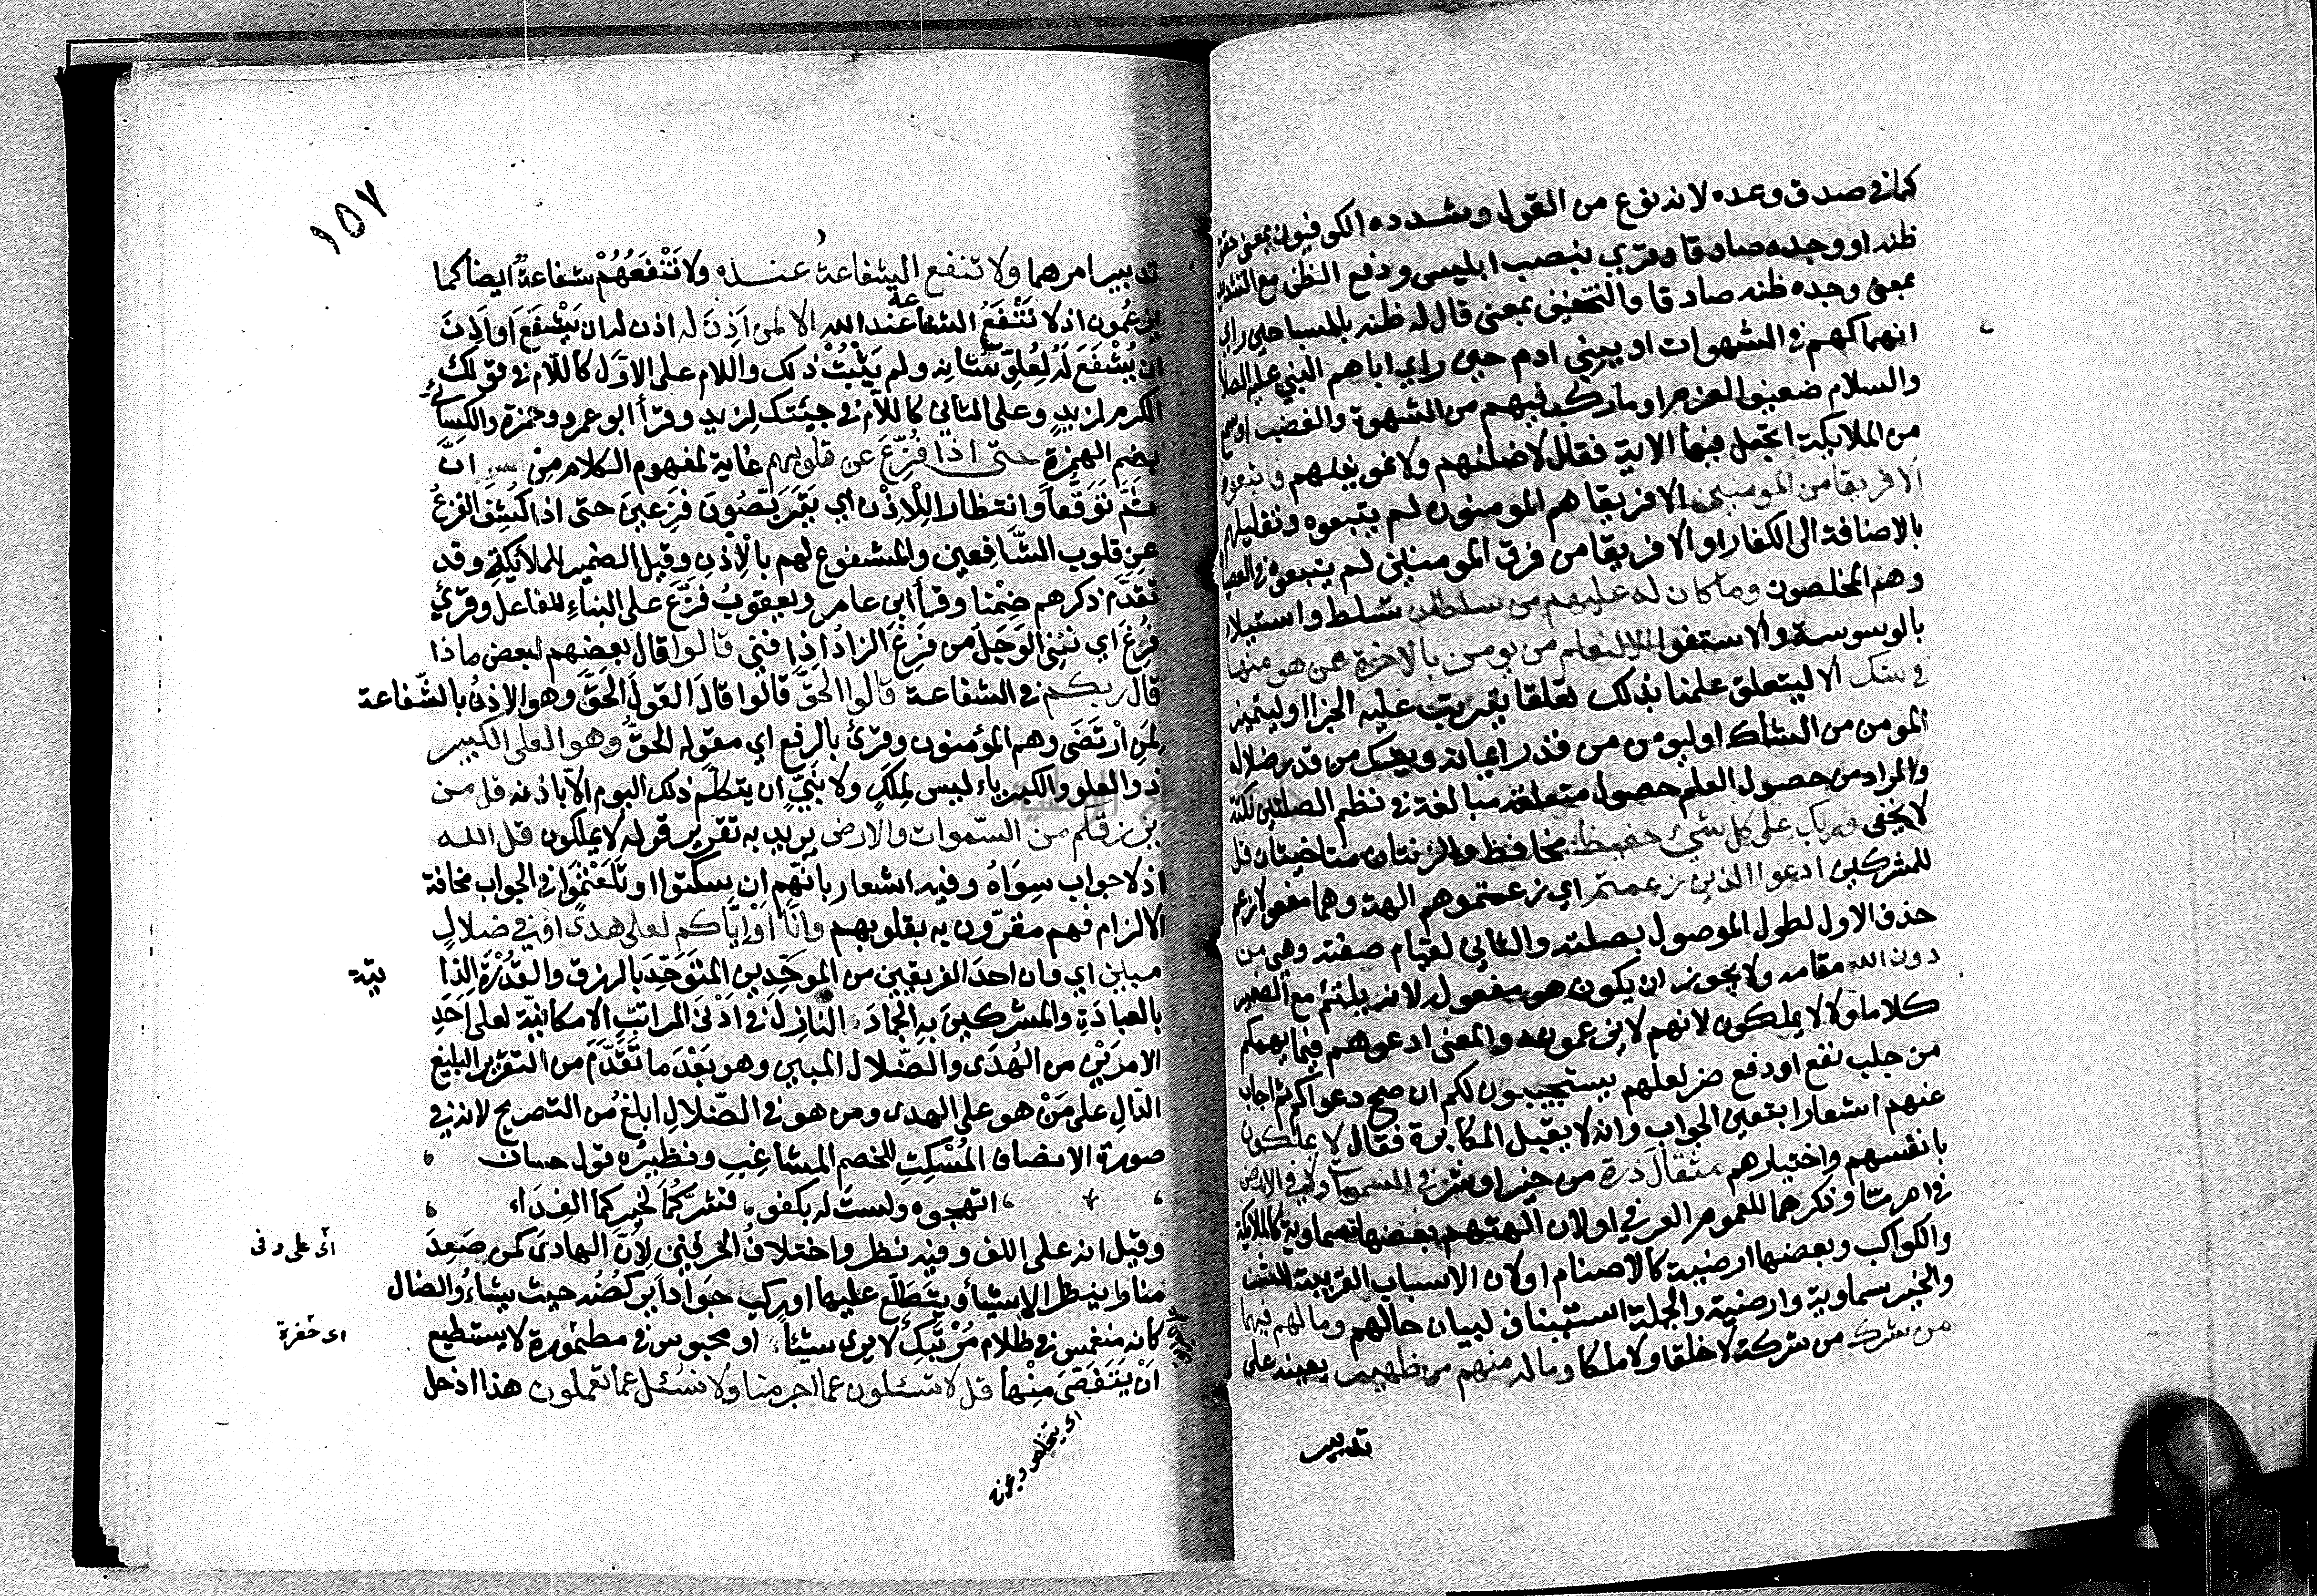 كما في صدق وعده لانه نوع من القول وشدده الكوفيون بمعنى حقق
ظنه او وجده صادقا وقري بنصب ابليس ورفع الظن مع التشديد
بمعنى وجده ظنه صادقا والتخفيف بمعنى قال له ظنه بالمسبا حين راي
انهماكهم في الشهوات او ببني ادم حين راي اباهم النبي عليه الصلا
والسلام ضعيف العزم او ما ركب فيهم من الشهوة والغضب او سمع
من الملايكة اتجعل فيها الاية فقال لاضلنهم ولاغوينهم فاتبعوه
الا فريقا من المومنين الا فريقا هم المومنون لم يتبعوه وتقليلهم
بالاضافة الى الكفار او الا فريقا من فرق المومنين لم يتبعوه في العصيا
وهم المخلصون وما كان له عليهم من سلطان تسلط واستيلاء
بالوسوسة والاستغوا الا لنعلم من يومن بالاخرة ممن هو منها
في شك الا ليتعلق علمنا بذلك تعلقا يترتب عليه الجزا او ليتميز
المومن من الشاك او ليومن من قدر ايمانه ويشك من قدر ضلاله
والمراد من حصول العلم حصول متعلقه مبالغة في نظم الصلتين نكتة
لا تخفى وربك على كل شيء حفيظ محافظ والزنتان متاخيتان قل
للمشركين ادعوا الذين زعمتم اي زعمتموهم الهة وهما مفعولا زعم
حذف الاول لطول الموصول بصلته والثاني لقيام صفته وهي من
دون الله مقامه ولا يجوز ان يكون هو مفعوله لانه لا يلتئم مع الضمير
كلاما ولا لا يملكون لانهم لا يزعمونه والمعنى ادعوهم فيما يهمكم
من جلب نفع او دفع ضر لعلهم يستجيبون لكم ان صح دعواكم ثم اجاب
عنهم اشعارا بتعين الجواب وانه لا يقبل المكابرة فقال لا يملكون
بانفسهم واختيارهم مثقال ذرة من خير او شر في السموات ولا في الارض
في امر مّا وذكرهما للعموم العرفي او لان الهتهم بعضها سماوية كالملايكة
والكواكب وبعضها ارضيية كالاصنام او لان الاسباب القريبة للشر
والخير سماوية وارضية والجملة استيناف لبيان حالهم وما لهم فيهما
من شرك من شركة لا خلقا ولا ملكا وما له منهم من ظهير يعينه على
تدبير
١٥٧
تدبير امرهما ولا تنفع الشفاعة عنده ولا تَنْفَعُهُمْ شفاعةٌ ايضا كما
يزعمُون اذ لا تَنْفَعُ الشفاعة عند الله الا لمن اَذِنَ له اذن له ان يَشْفَعَ اَو اَذِنَ
ان يُشْفَعَ لَه لِعُلُوِّ شَانِه ولم يَثْبُتْ ذلك واللام على الاوّل كاللّام في قولك
الكرم لزيدٍ وعلى الثاني كاللّام في جئتك لزيد وقرأ ابو عمرو وحمزة والكسائي
بضم الهمزة حتى اذا فُزِّعَ عن قلوبهم غاية لمفهوم الكلام مِن انَّ
ثَمَّ تَوَقُّعاً وانتظارا لِلْاِذْن اي يَتَرَبّصُونَ فَزِعينَ حتى اذا كُشِفَ الفزعُ
عن قلوب الشّافِعين والمشفوع لهم بالْاِذْنِ وقيل الضمير للملائِكةِ وقد
تقدّم ذكرهم ضِمْنا وقرأ ابن عامر ويعقوبُ فَزَّعَ على البناءِ للفاعل وقرئ
فُرِغَ اي نُفِيَ الوَجَلُ من فَرِغَ الزادُ اِذا فني قالوا قال بعضهم لبعض ماذا
قال ربكم في الشفاعة قالوا الحقَّ قَالُوا قالَ القولَ الحَقَّ وهو الاِذنُ بالشّفاعة
لِمَنِ ارْتَضَى وهم المؤمنون وقرئ بالرفع اي مقوله الحقُّ وهو العلي الكبير
ذو العلو والكبرياء ليس لِمَلَكٍ ولا نَبِيٍّ ان يتكلّم ذلك اليوم الّا باذنه قل من
يرزقكم من السّموات والارض يريد به تقرير قوله لا يملكون قل الله
اذ لا جواب سِوَاهُ وفيه اشعار بانّهم ان سكتوا او تَلَعْثَمُوا في الجواب مخافة
الالزام فهم مقرّون به بقلوبهم وانّا اَوْ اِيّاكم لعلى هدًى او في ضلالٍ
مبين اي وان احدَ الفريقين من الموحِّدين المتَوَحِّدَ بالرزق والقُدْرَةِ الذا
تية
بالعبادَةِ والمشركينَ بهِ الجمادَ النازلَ في اَدْنَى المراتبِ الاِمكانيّة لعلى اَحَدِ
الامرَيْنِ من الهُدَى والضّلال المبين وهو بَعْدَ ما تقدَّمَ من التقرير البليغ
الدّالِ على مَنْ هو على الهدى ومن هو في الضّلالِ ابلغُ من التصريح لانه في
صورة الانصاف المُسْكِتِ للخصم المشاغِبِ ونظيرُه قول حسان
اتهجوه ولستَ له بكفوٍ، فشرُّكُما لخيركما الفِدَاء
وقيل انه على اللف وفيه نظر واختلافُ الحرفَيْنِ لِاَنَّ الهادىَ كمن صَعِدَ
اى على وفى
منارا ينظر الاشياءَ ويتَطَلّع عليها او ركب جَوَاداً يركُضُه حيث يشاءُ والضال
كانه منغمس في ظلام مُرْتَبِك لا يرى شيئاً او محبوس في مطمُورة لا يستطيع
اى حُفرة
اَنْ يَتَفَصَّىَ مِنْها قل لا تسئلون عما اجرمنا ولا نُسْئل عما تعملون هذا ادخل
اى يتخلص